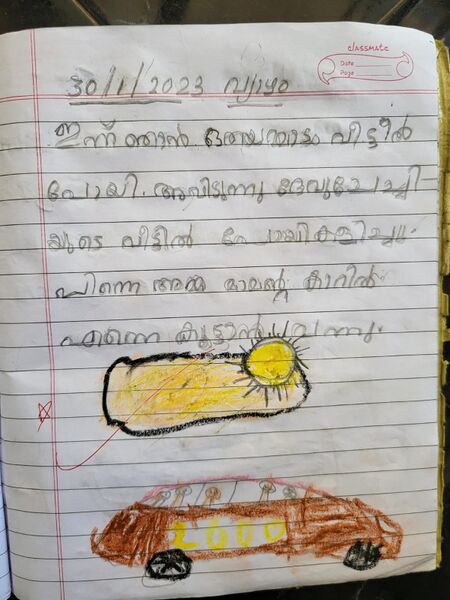 classmate
Date
Page
30/11/2023 വ്യാഴം
ഇന്ന് ഞാൻ വീട്ടിൽ
പോയി. അവിടുന്നു ദേവുചേച്ചി-
യുടെ വീട്ടിൽ പോയി കളിച്ചു.
പിന്നെ അമ്മ മാമന്റെ കാറിൽ
എന്നെ കൂട്ടാൻ വന്നു.
2600